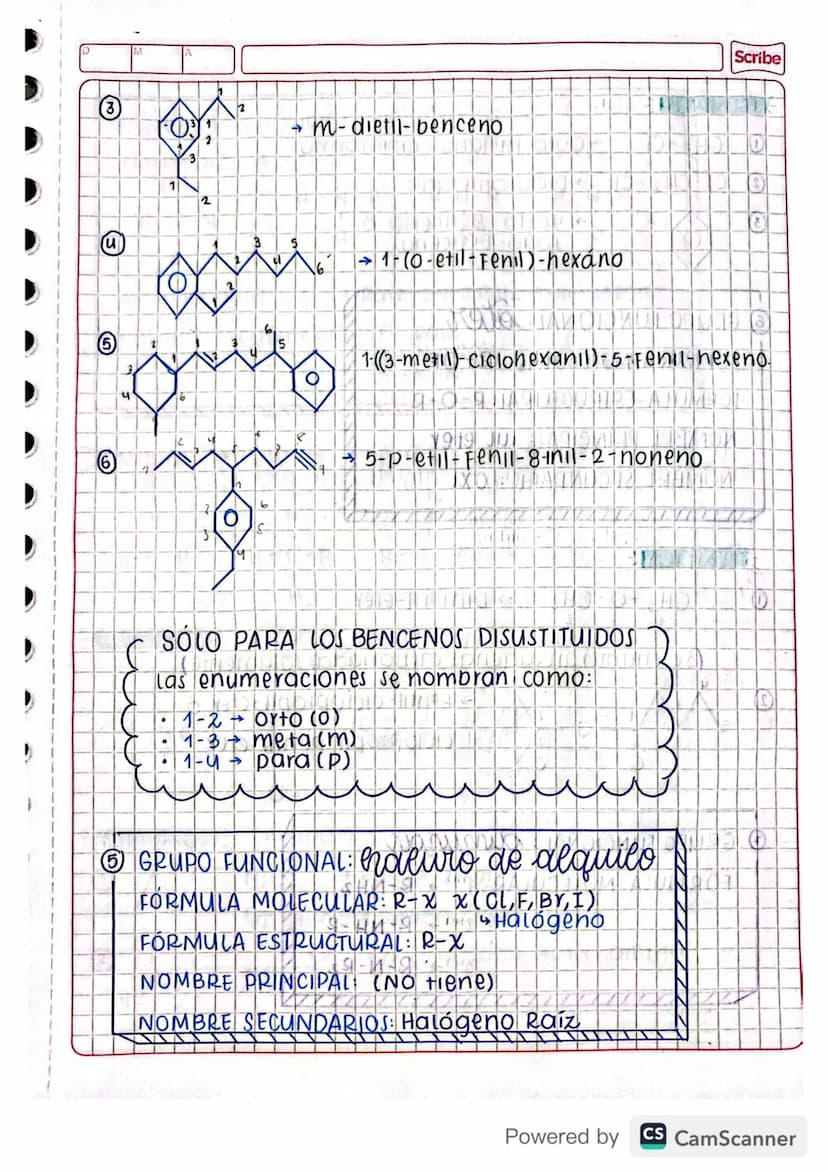 D M A
Scribe
③
1 2 3 1 2 1 3 1 2
→ m-dietil-benceno
④
1 2 3 4 5 6 1 2
→ 1-(o-etil-Fenil)-hexáno
⑤
2 1 1 2 3 4 6 5 3 4 6
1-((3-metil)-ciclohexanil)-5-Fenil-hexeno.
⑥
1 2 4 5 6 7 8 9
→ 5-p-etil-Fenil-8-inil-2-noneno
1 2 6 3 5 4
SÓLO PARA LOS BENCENOS DISUSTITUIDOS
las enumeraciones se nombran como:
· 1-2 → orto (o)
· 1-3 → meta (m)
· 1-4 → para (p)
⑤ GRUPO FUNCIONAL: haluro de alquilo
FÓRMULA MOLECULAR: R-X X(Cl,F,Br,I)
↳Halógeno
FÓRMULA ESTRUCTURAL: R-X
NOMBRE PRINCIPAL: (NO tiene)
NOMBRE SECUNDARIOS: Halógeno Raíz
Powered by CS CamScanner